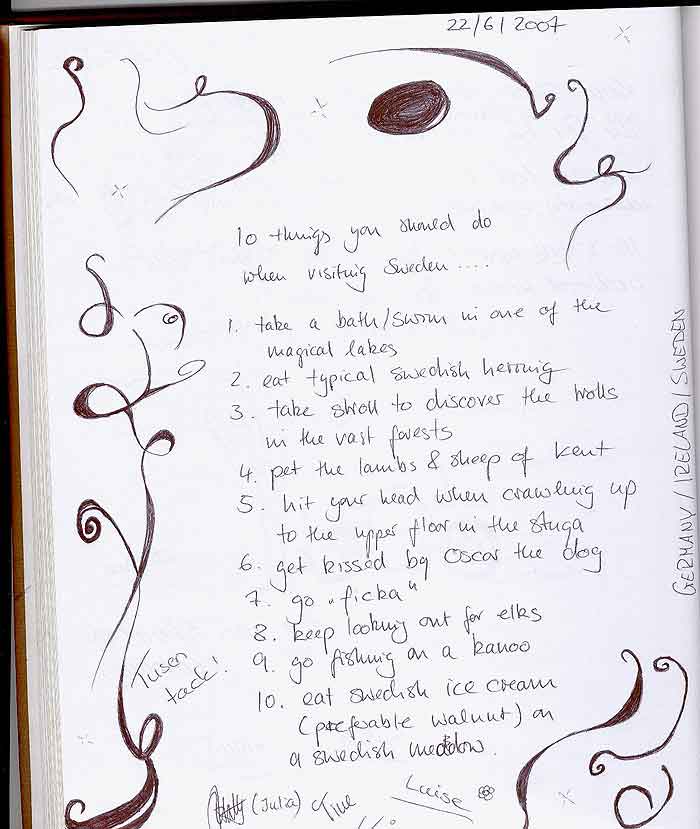 22/6/2007
10 things you should do
when visiting Sweden ....
1. take a bath/swim in one of the
magical lakes
2. eat typical swedish herring
3. take stroll to discover the trolls
in the vast forests
4. pet the lambs & sheep of Kent
5. hit your head when crawling up
to the upper floor in the stuga
6. get kissed by Oscar the dog
7. go „ficka"
8. keep looking out for elks
9. go fishing on a kanoo
10. eat swedish ice cream
(preferable walnut) on
a swedish meadow.
Tusen
tack!
(Julia) Tine Luise
GERMANY / IRELAND / SWEDEN